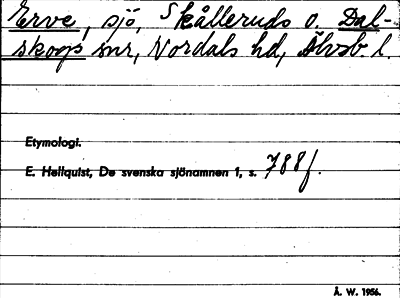 Erve, sjö, Skålleruds o. Dal-
skogs snr, Nordals hd, Älvsb. l.
Etymologi.
E. Hellquist, De svenska sjönamnen 1, s. 788 f.
Å. W. 1956.